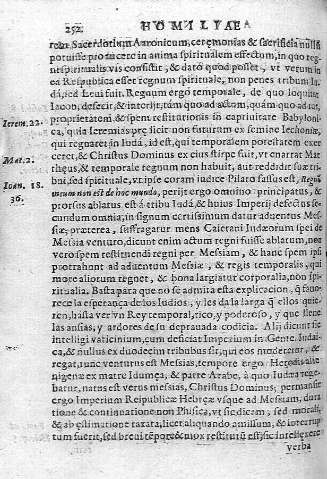 252 HOMILIAE
reor, Sacerdotium Aaronicum, ceremonias & sacrificia nullũ
potuisse producere in anima spiritualem effectum, in quo reg
num spiritualis vis consistit, & datõ quod posset, vt verum in
ea Republica esset regnum spirituale, non penes tribum Iu-
da, sed Leui fuit. Regnum ergo temporale, de quo loquitur
Iacob, defecit, & interijt, tàm quo ad actum, quàm quo ad ius,
proprietatem, & spem restitutionis in captiuitate Babyloni
Ierem. 22. ca, quia Ieremias prędicit non futurum ex semine Iechoniæ,
qui regnaret in Iudá, id est, qui temporalem potestatem exer
Mat. 2. ceret, & Christus Dominus ex eius stirpe fuit, vt enarrat Mat
theus, & temporale regnum non habuit, aut reddidit suæ tri
Ioan. 18. bui, sed spirituale, vt ipse coram iudice Pilato fassus est, Regnũ
36. meum non est de hoc mundo, perijt ergo omnino principatus, &
prorsus ablatus est à tribu Iudá, & huius Imperij defectus se
cundum omnia, in signum certissimum datur aduentus Mes-
siæ; præterea, suffragatur mens Caietani Iudæorum spei de
Messia venturo, dicunt enim actum regni fuisse ablatum, non
vero spem restituendi regni per Messiam, & hanc spem ipsi
protrahunt ad aduentum Messiæ, & regis temporalis, qui
more aliorum regnet, & bona largiatur corporalia, non spi-
ritualia. Basta para que no se admita esta explicacion, q̃ fauo-
rece la esperança de los Iudios, y les da la larga q̃ ellos quie-
ren, hasta ver vn Rey temporal, rico, y poderoso, y que llene
las ansias, y ardores de su deprauada codicia. Alij dicunt sic
intelligi vaticinium, cum deficiat Imperium in Gente Iudai-
ca, & nullus ex duodecim tribubus sit, qui eos moderetur, &
regat, tunc venturus est Messias, tempore ergo Herodis alie
nigenæ ex matre Idumęa, & patre Arabe, à quo Iudæa rege
batur, natus est verus messias, Christus Dominus; permansit
ergo Imperium Reipublicæ Hebreæ vsque ad Messiam, dura
tione & continuatione non Phisica, vt sic dicam, sed morali,
& ab ęstimatione taxata, licet aliquando amissum, & interrup
tum fuerit, sed breui tẽpore & mox restitutũ est, sic intelligere
verba